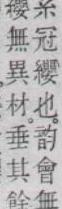 系冠纓也韵會無
纓無異材垂其餘